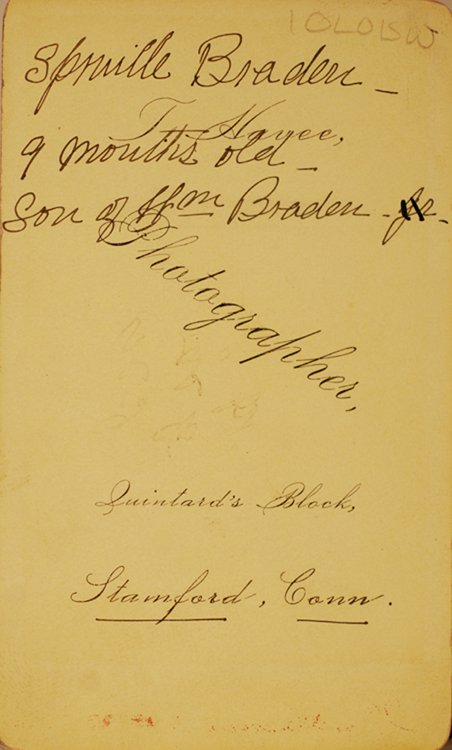 Spruille Braden -
T. Hayee,
9 months old -
Son of Wm Braden - Jr -
Photographer,
Quintard's Block,
Stamford, Conn.